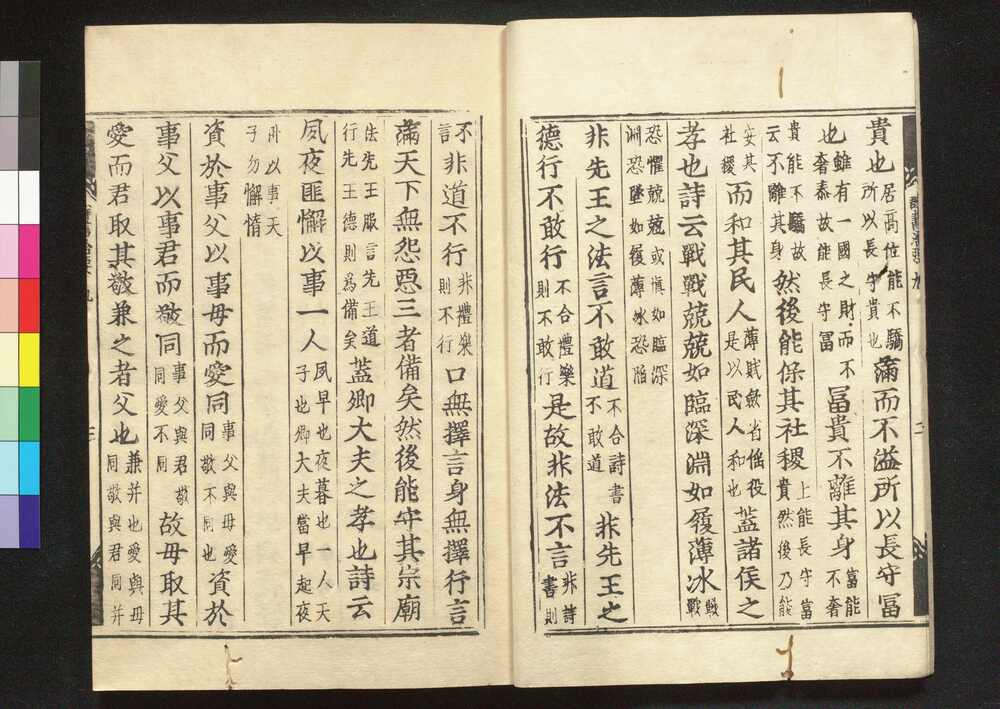 貴也居高位能不驕所以長守貴也滿而不溢所以長守冨
也雖有一國之財而不奢泰故能長守冨冨貴不離其身富能不奢
貴能不驕故云不離其身然後能保其社稷上能長守富貴然後乃能
安其社稷而和其民人薄賦斂省徭役是以民人和也蓋諸侯之
孝也詩云戰戰兢兢如臨深淵如履薄冰戰戰
恐懼兢兢戒慎如臨深淵恐墜如履薄冰恐陷
非先王之法言不敢道不合詩書不敢道非先王之
德行不敢行不合禮樂則不敢行是故非法不言非詩書則
不言非道不行非禮樂則不行口無擇言身無擇行言
滿天下無怨惡三者備矣然後能守其宗廟
法先王服言先王道行先王德則為備矣蓋卿大夫之孝也詩云
夙夜匪懈以事一人夙早也夜暮也一人天子也卿大夫當早起夜
卧以事天子勿懈惰
資於事父以事母而愛同事父與母愛同敬不同也資於
事父以事君而敬同事父與君敬同愛不同故母取其
愛而君取其敬兼之者父也兼并也愛與母同敬與君同并